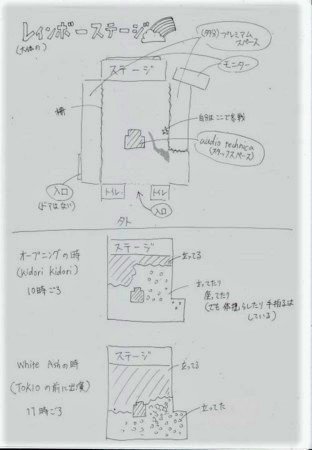 レインボーステージ
(大体の)
(有料)プレミアム
スペース
ステージ
モニター
柵
自分はここで参戦
audio technica
(スタッフスペース)
入口
(ドアはない)
トイレ
トイレ
入口
外
オープニングの時
(kidori kidori)
10時ごろ
ステージ
立ってる
立ってたり
座ってたり
(でも体揺らしたり手拍子は
している)
White Ashの時
(TOKIOの前に出演)
17時ごろ
ステージ
立ってる
立ってた